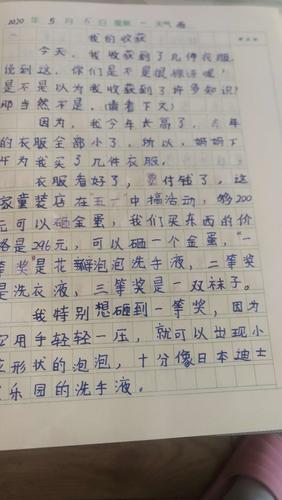 2020年 5月 5日 星期一 天气雨
我的收获
今天，我收获到了几件衣服，
说到这，你们是不是很惊讶呢！
是不是以为我收获到了许多知识？
那当然不是。（请看下文）
因为，我今年长高了，去年
的衣服全部小了，所以，妈妈下
午为我买了几件衣服。
衣服看好了，要付钱了，这
家童装店在五一中搞活动，够200
元可以砸金蛋，我们买东西的价
格是296元，可以砸一个金蛋，一
等奖是花瓣泡泡洗手液，二等奖
是洗衣液，三等奖是一双袜子。
我特别想砸到一等奖，因为
它用手轻轻一压，就可以出现小
花形状的泡泡，十分像日本迪士
尼乐园的洗手液。